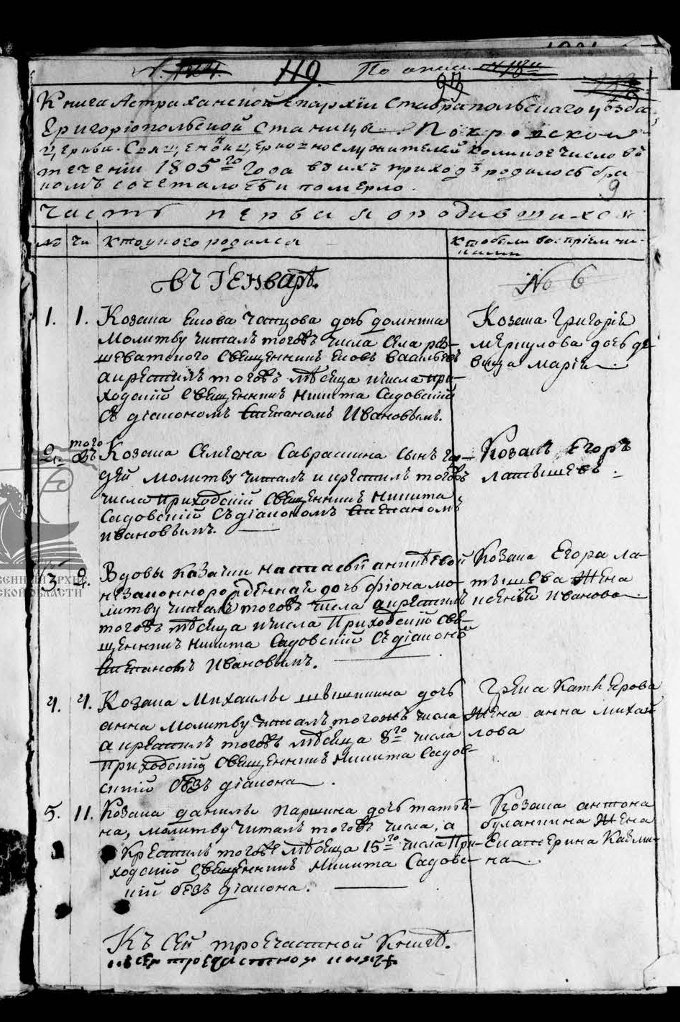 119. По описи
98
Книга Астраханской Епархии Ставропольского уезда
Григоріопольской Станицы Покровской
церкви. Священно и церковнослужителей коликое число въ
течении 1805го года въ ихъ приходѣ родилось бра-
комъ сочеталось и померло.
9
Часть первая о родившихся
№ Чи У кого родился
Кто были восприемни-
ками
Въ Генварѣ.
No 6
1. 1. Козака дочь домника
Молитву читалъ тогожъ числа села
шеватского Священникъ
а крестилъ тогожъ мѣсеца и числа при-
ходскій Священникъ Никита Садовскій
Съ діакономъ Степаномъ Ивановымъ.
Козака Григорія
Меркулова дочь де-
вица Марія
2. того въ Козака Семиона Саврасина сынъ
молитву читалъ и крестилъ тогожъ
числа приходскій Священникъ Никита
Садовскій Съ діакономъ Степаномъ
Ивановымъ.
Козакъ Егоръ
Латышевъ
3. 2. Вдовы казачки настасьи
незаконнорожденная дочь фіона мо-
литву читалъ тогожъ числа а крестилъ
тогожъ мѣсеца и числа Приходскій Свя-
щенникъ Никита Садовскій Съ діакономъ
Степаномъ Ивановымъ.
Козака Егора Ла-
тышева Жена
Иванова
4. 4. Козака Михайлы дочь
анна Молитву читалъ тогожъ числа
а крестилъ тогожъ мѣсеца 8го числа
приходскій Священникъ Никита Садов-
скій безъ діакона
Жена анна михай
лова
5. 11. Козака данилы Паршина дочь татья-
на, молитву читалъ тогожъ числа, а
Крестилъ тогожъ мѣсеца 15го числа При-
ходскій Священникъ Никита Садовс-
кій безъ діакона.
Козака антона
буланкина Жена
Екатерина
на
Къ сей троечастной Книгѣ.
къ сей троечастной книгѣ